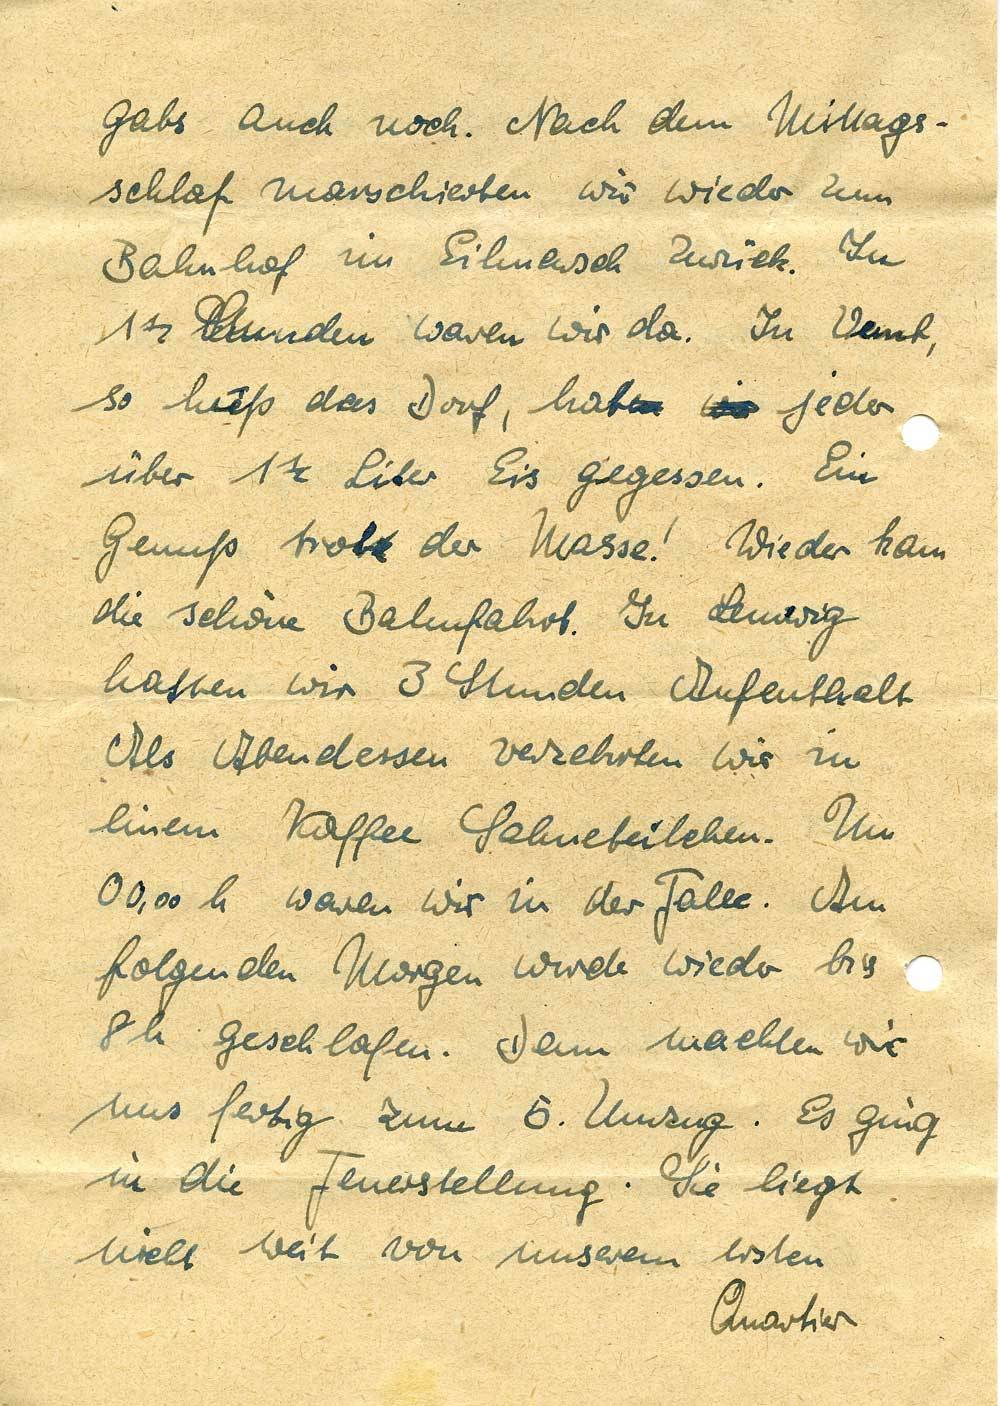 gabs auch noch. Nach dem Mittags-
schlaf marschierten wir wieder zum
Bahnhof im Eilmarsch zurück. In
1½ Stunden waren wir da. In
so hieß das Dorf, hat jeder
über 1½ Liter Eis gegessen. Ein
Genuß trotz der Masse! Wieder kam
die schöne Bahnfahrt. In
hatten wir 3 Stunden Aufenthalt
Als Abendessen verzehrten wir in
einem Kaffee Sahneteilchen. Um
00,00 h waren wir in der Falle. Am
folgenden Morgen wurde wieder bis
8 h geschlafen. Dann machten wir
uns fertig zum 5. Umzug. Es ging
in die Feuerstellung. Sie liegt
nicht weit von unserem ersten
Quartier